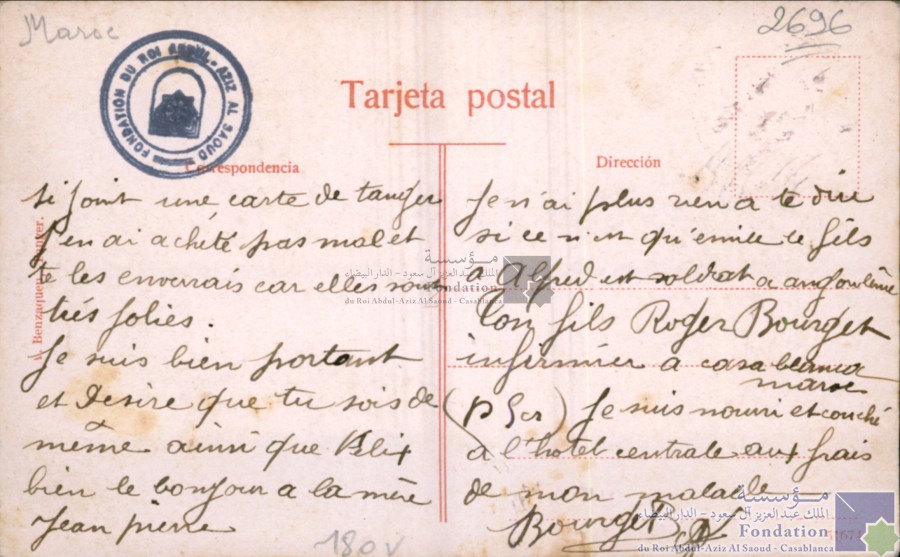 Maroc
2696
FONDATION DU ROI ABDUL-AZIZ AL SAOUD
Tarjeta postal
Correspondencia
Dirección
si joint une carte de tanger
j'en ai acheté pas mal et
te les enverrais car elles sont
très jolies.
Je suis bien portant
et Desire que tu sois de
même ainsi que Félix
bien le bonjour a la mère
Jean pierre
Je n'ai plus rien a te dire
si ce n'est qu'emile le fils
a Alfred est soldat a angoulême
Ton fils Roger Bourget
infirmier a casablanca
maroc
Je suis nourri et couché
a l'hotel centrale aux frais
de mon malade
Bourget R
180v
Benzaquen, Tanger.
مؤسسة
الملك عبد العزيز آل سعود - الدار البيضاء
Fondation
du Roi Abdul-Aziz Al Saoud - Casablanca
مؤسسة
الملك عبد العزيز آل سعود - الدار البيضاء
Fondation
du Roi Abdul-Aziz Al Saoud - Casablanca